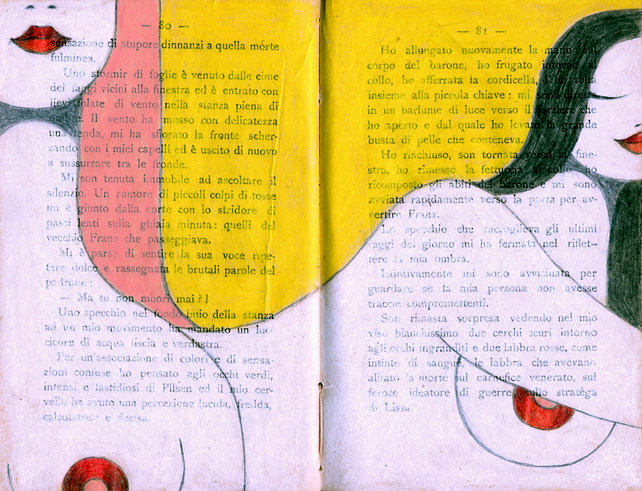 — 80 —
sensazione di stupore dinnanzi a quella morte
fulminea.
Uno stormir di foglie è venuto dalle cime
dei faggi vicini alla finestra ed è entrato con
lievi folate di vento nella stanza piena di
Il vento ha mosso con delicatezza
una tenda, mi ha sfiorato la fronte scher-
zando con i miei capelli ed è uscito di nuovo
a sussurrare tra le fronde.
Mi son tenuta immobile ad ascoltare il
silenzio. Un rumore di piccoli colpi di tosse
mi è giunto dalla corte con lo stridore di
passi lenti sulla ghiaia minuta: quelli del
vecchio Franz che passeggiava.
Mi è parso di sentire la sua voce ripe-
tere dolce e rassegnata le brutali parole del
padrone:
— Ma tu non muori mai?!
Uno specchio nel fondo buio della stanza
ad un mio movimento ha mandato un luc-
cicore di acqua liscia e verdastra.
Per un'associazione di colori e di sensa-
zioni confuse ho pensato agli occhi verdi,
intensi e fastidiosi di Pilsen ed il mio cer-
vello ha avuto una percezione lucida, fredda,
calcolatrice e decisa.
— 81 —
Ho allungato nuovamente la mano sul
corpo del barone, ho frugato intorno al
collo, ho afferrata la cordicella, l'ho tolta
insieme alla piccola chiave: mi son diretta
in un barlume di luce verso il che
ho aperto e dal quale ho levato la grande
busta di pelle che conteneva.
Ho rinchiuso, son tornata verso la fine-
stra, ho rimesso la fettuccia al collo, ho
ricomposto gli abiti del barone e mi sono
avviata rapidamente verso la porta per av-
vertire Franz.
Lo specchio che raccoglieva gli ultimi
raggi del giorno mi ha fermata nel riflet-
tere la mia ombra.
Istintivamente mi sono avvicinata per
guardare se la mia persona non avesse
traccie compromettenti.
Son rimasta sorpresa vedendo nel mio
viso bianchissimo due cerchi scuri intorno
agli occhi ingranditi e due labbra rosse, come
intinte di sangue, le labbra che avevano
alitato la morte sul carnefice venerato, sul
feroce ideatore di guerre, sullo stratèga
di Lissa